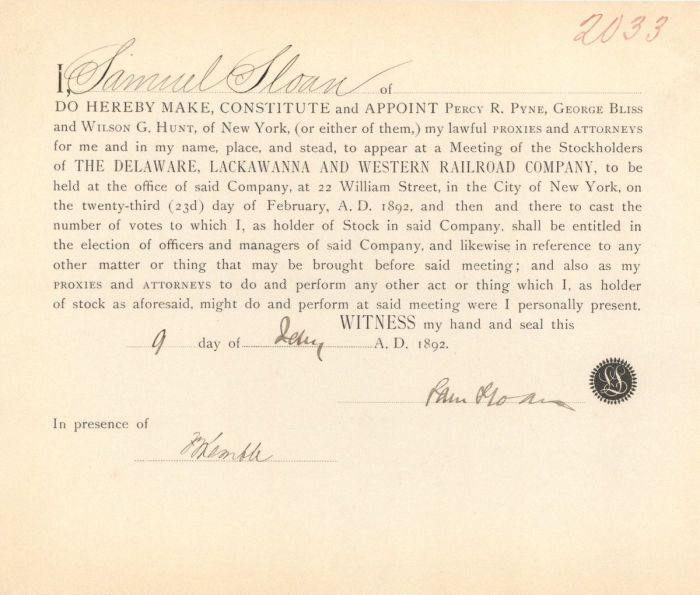 2033
I, Samuel Sloan of
DO HEREBY MAKE, CONSTITUTE and APPOINT PERCY R. PYNE, GEORGE BLISS
and WILSON G. HUNT, of New York, (or either of them,) my lawful PROXIES and ATTORNEYS
for me and in my name, place, and stead, to appear at a Meeting of the Stockholders
of THE DELAWARE, LACKAWANNA AND WESTERN RAILROAD COMPANY, to be
held at the office of said Company, at 22 William Street, in the City of New York, on
the twenty-third (23d) day of February, A. D. 1892, and then and there to cast the
number of votes to which I, as holder of Stock in said Company, shall be entitled in
the election of officers and managers of said Company, and likewise in reference to any
other matter or thing that may be brought before said meeting; and also as my
PROXIES and ATTORNEYS to do and perform any other act or thing which I, as holder
of stock as aforesaid, might do and perform at said meeting were I personally present.
WITNESS my hand and seal this
9 day of Feby A. D. 1892.
Sam Sloan
LS
In presence of
Kemble